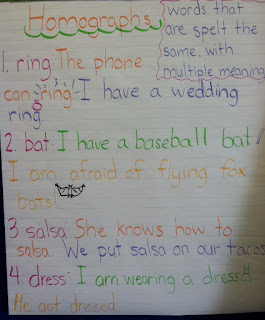 Homographs
words that
are spelt the
same, with
multiple meaning
1. ring: The phone
can ring. I have a wedding
ring
2. bat: I have a baseball bat!
I am afraid of flying fox
bats!
3 salsa: She knows how to
salsa. We put salsa on our tacos
4. dress: I am wearing a dress.
He got dressed.